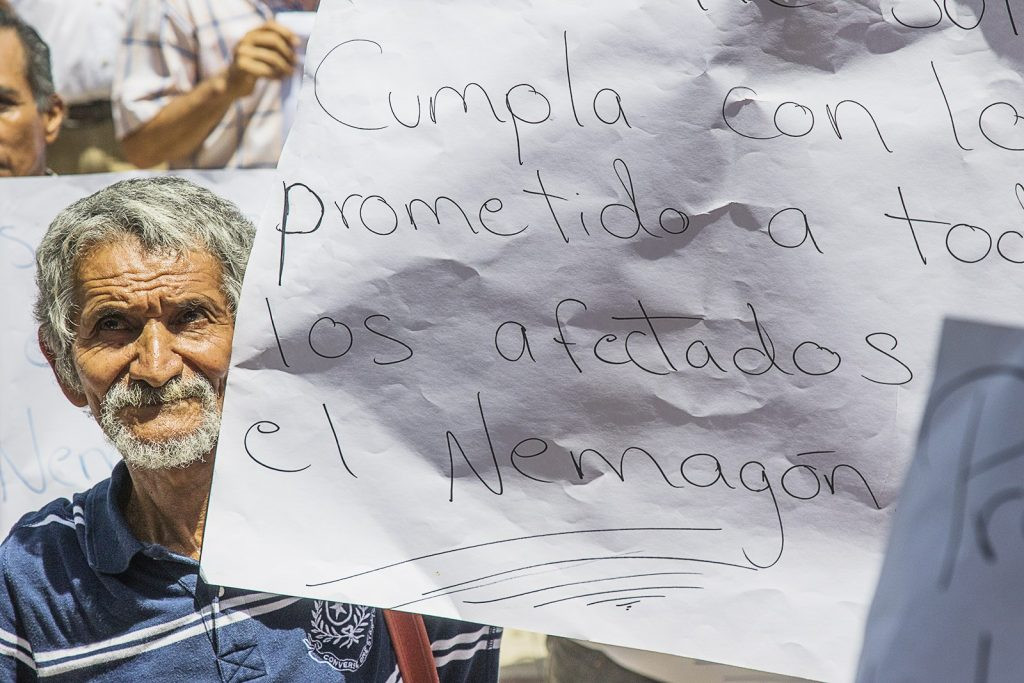 Cumpla con lo
prometido a tod
los afectados
el Nemagón
Nem
CONVERSE